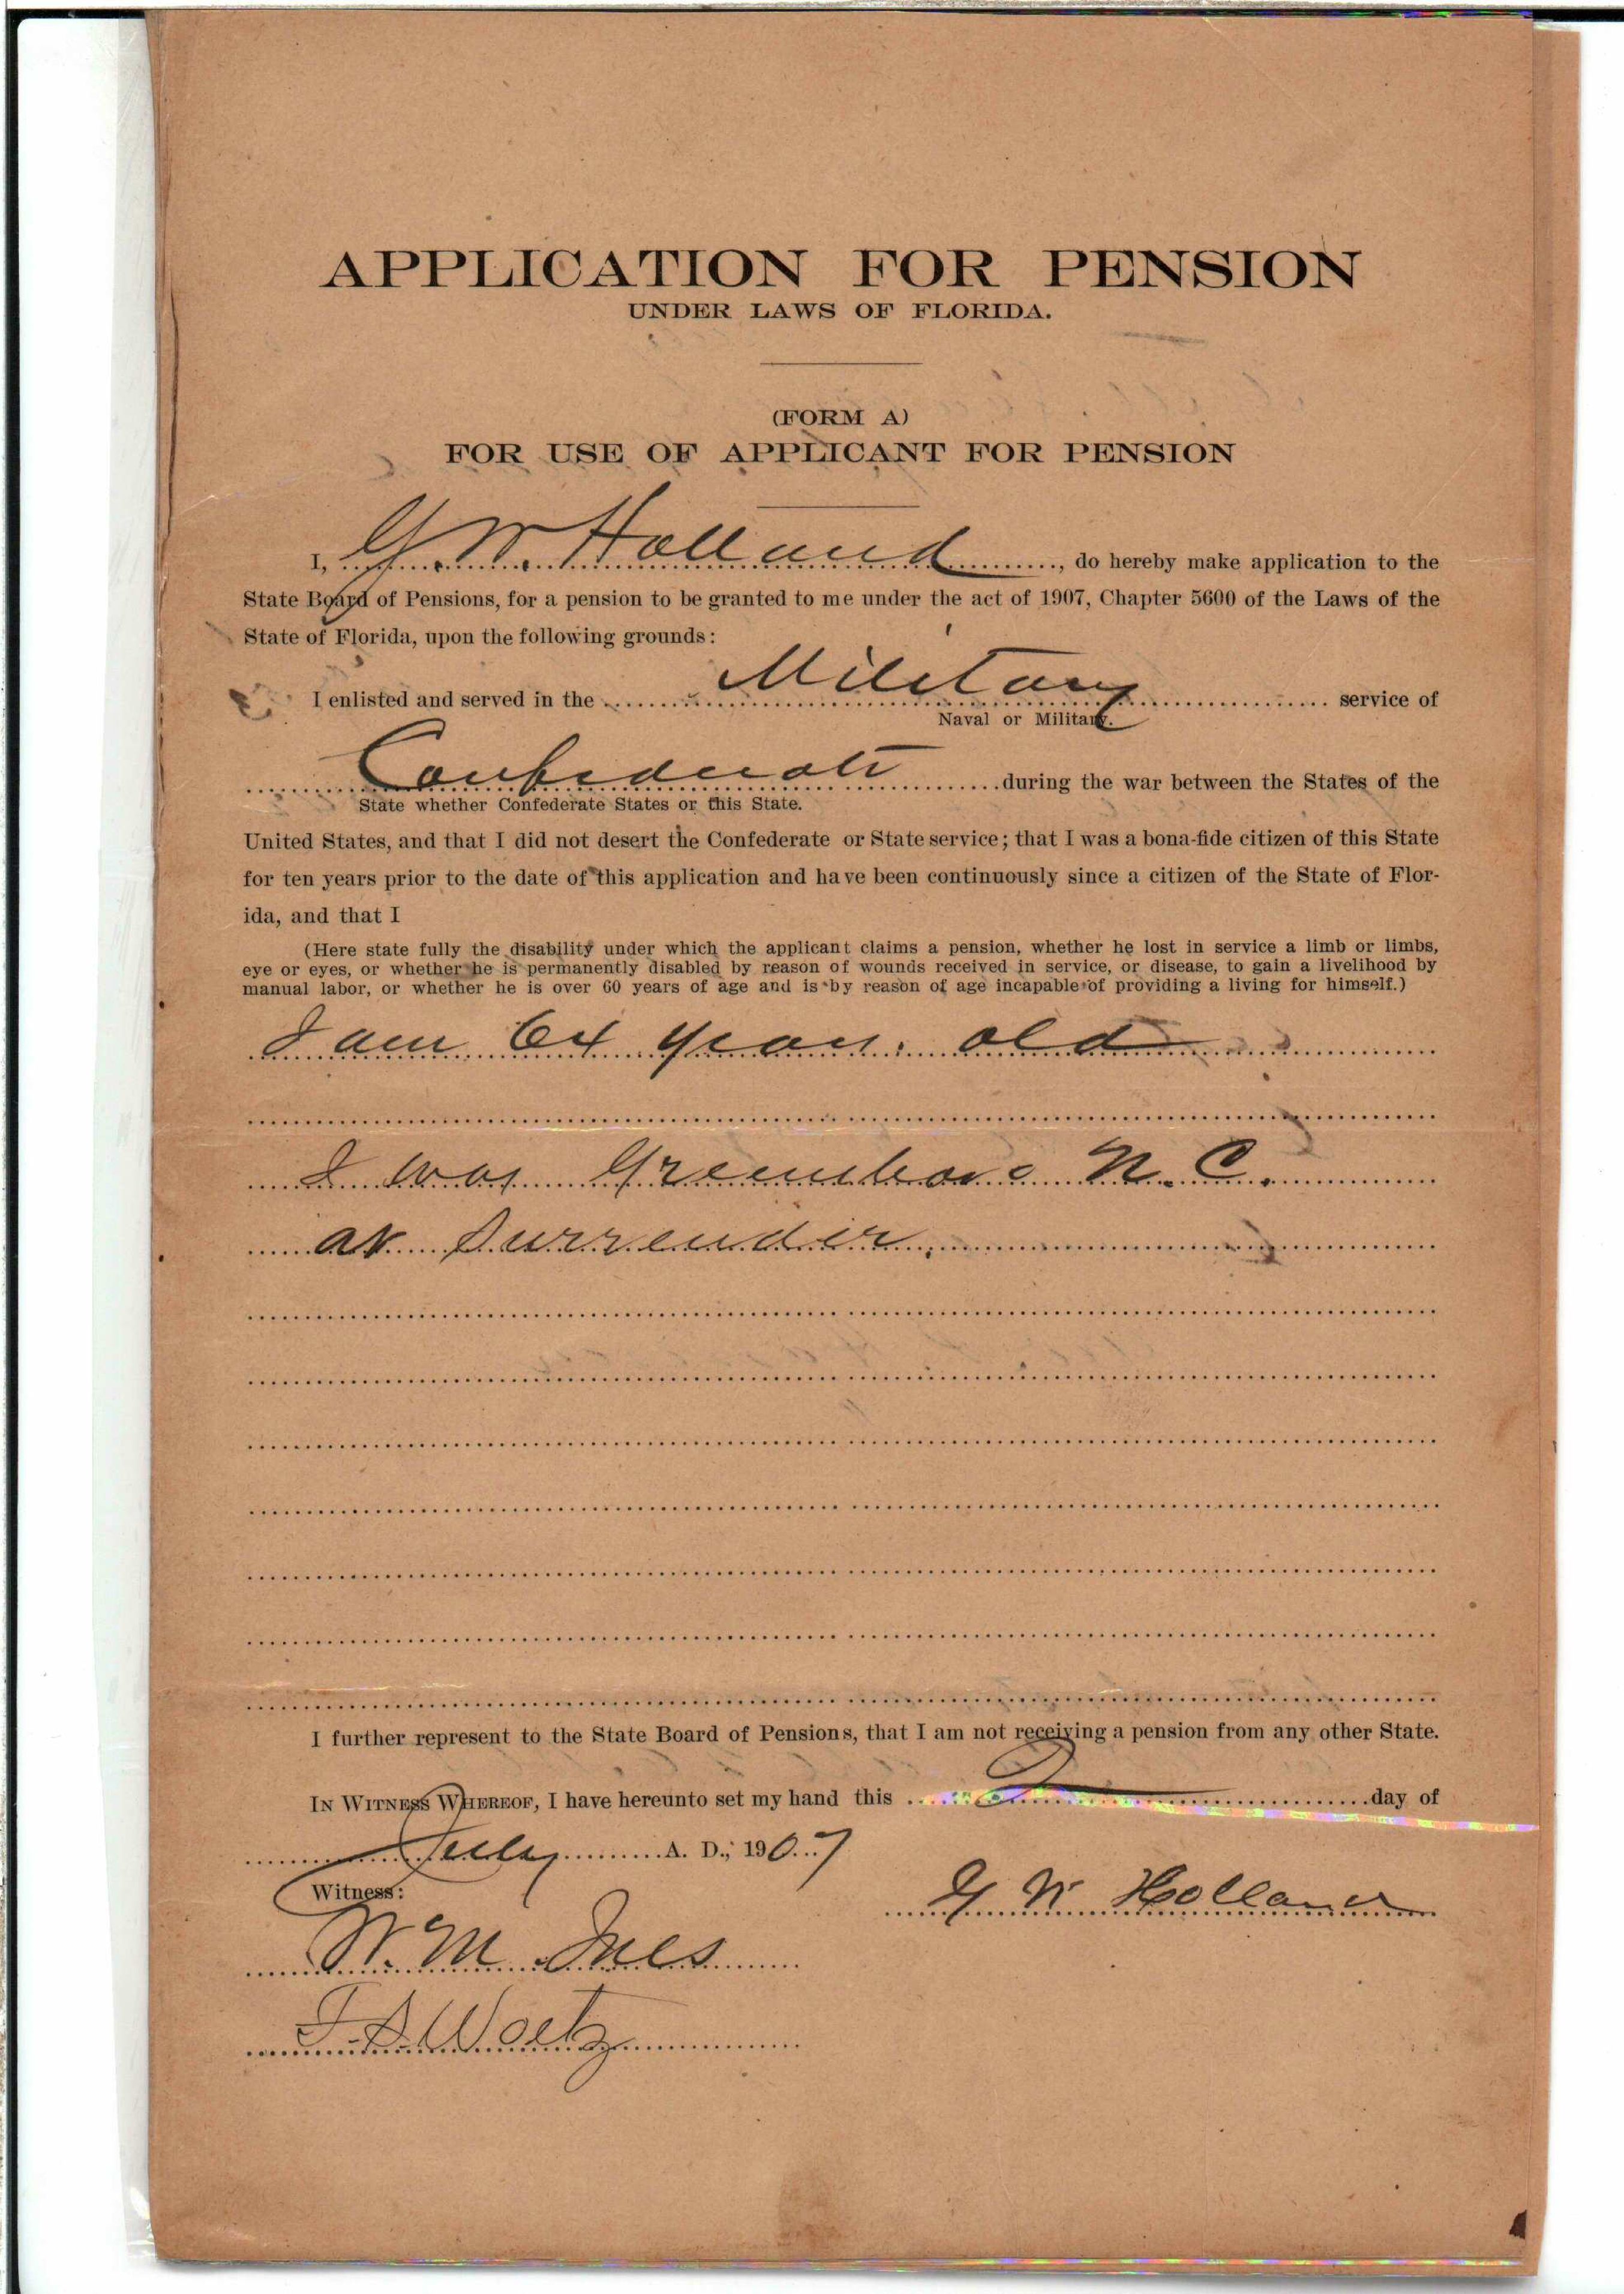 APPLICATION FOR PENSION
UNDER LAWS OF FLORIDA.
(FORM A)
FOR USE OF APPLICANT FOR PENSION
I, G. W. Holland, do hereby make application to the
State Board of Pensions, for a pension to be granted to me under the act of 1907, Chapter 5600 of the Laws of the
State of Florida, upon the following grounds:
I enlisted and served in the Military service of
Naval or Military.
Confederate during the war between the States of the
State whether Confederate States or this State.
United States, and that I did not desert the Confederate or State service; that I was a bona-fide citizen of this State
for ten years prior to the date of this application and have been continuously since a citizen of the State of Flor-
ida, and that I
(Here state fully the disability under which the applicant claims a pension, whether he lost in service a limb or limbs,
eye or eyes, or whether he is permanently disabled by reason of wounds received in service, or disease, to gain a livelihood by
manual labor, or whether he is over 60 years of age and is by reason of age incapable of providing a living for himself.)
I am 64 years old
I was Greensboro N. C.
at Surrender.
I further represent to the State Board of Pensions, that I am not receiving a pension from any other State.
IN WITNESS WHEREOF, I have hereunto set my hand this day of
July A. D., 1907
Witness:
G W Holland
W. M. Ives